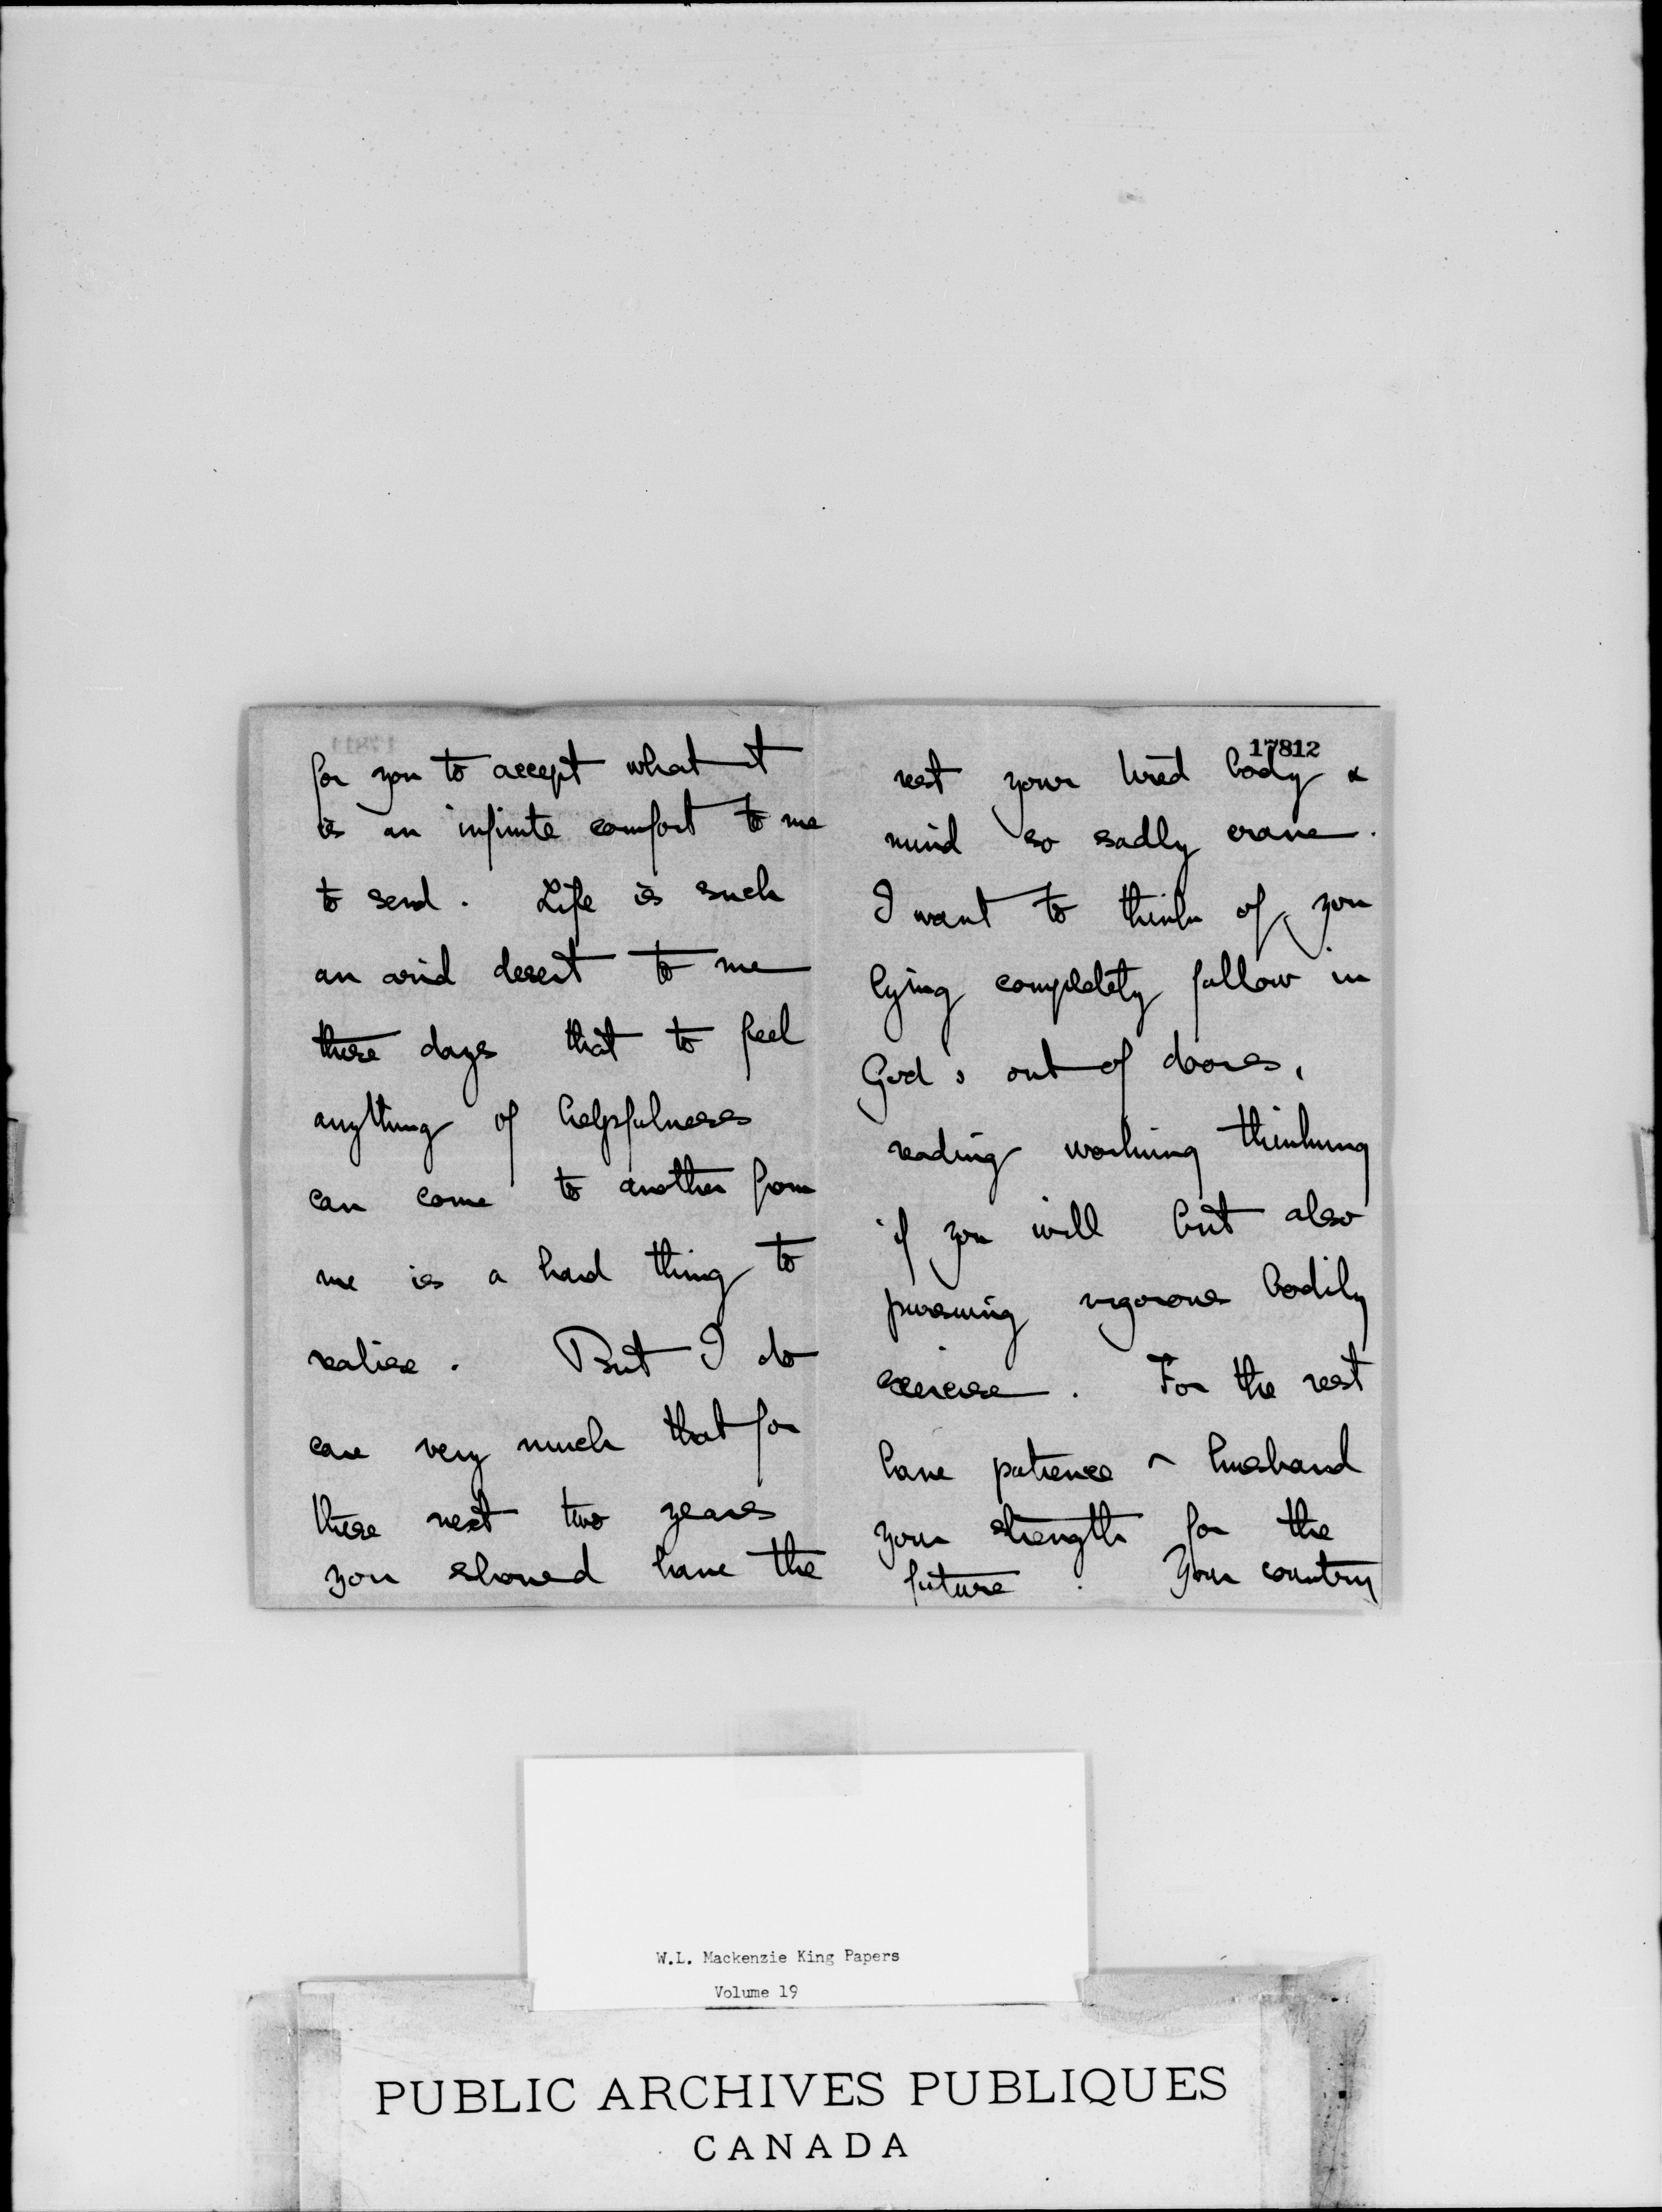 for you to accept what it
is an infinite comfort to me
to send. Life is such
an arid desert to me
these days that to feel
anything of helpfulness
can come to another from
me is a hard thing to
realise. But I do
care very much that for
these next two years
you should have the
17812
rest your tired body &
mind so sadly crave.
I want to think of you
lying completely fallow in
God's out of doors,
reading working thinking
if you will but also
pursuing vigorous bodily
exercise. For the rest
have patience & husband
your strength for the
future. Your country
W.L. Mackenzie King Papers
Volume 19
PUBLIC ARCHIVES PUBLIQUES
CANADA